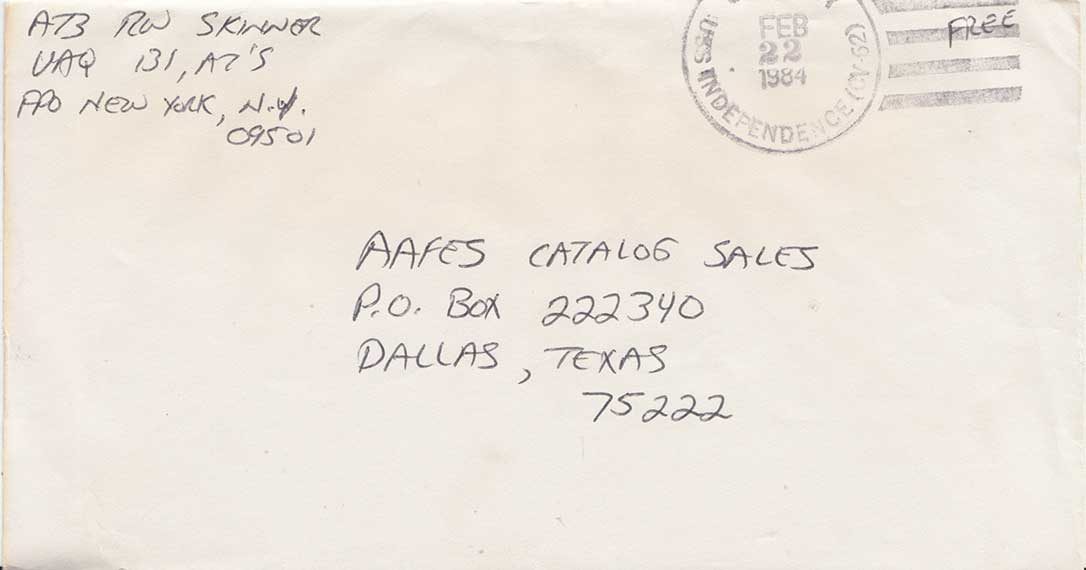 AT3 RW SKINNER
VAQ 131, AT'S
FPO NEW YORK, N.Y.
09501
FEB
22
1984
USS INDEPENDENCE (CV-62)
FREE
AAFES CATALOG SALES
P.O. BOX 222340
DALLAS, TEXAS
75222